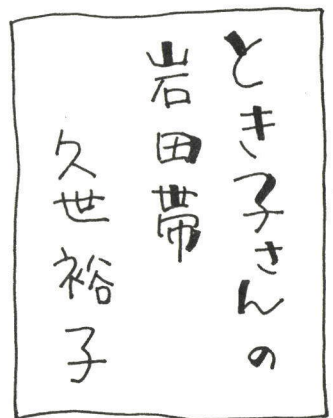 とき子さんの
岩田帯
久世裕子